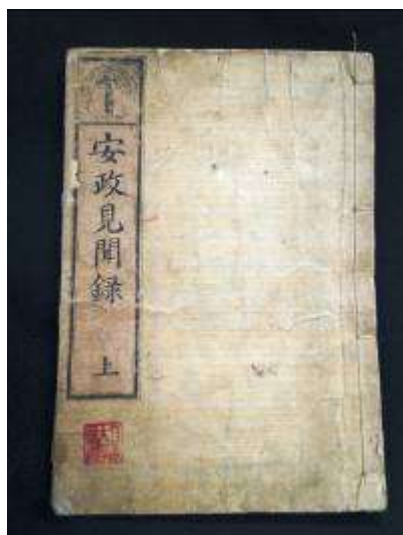 安政見聞録
上